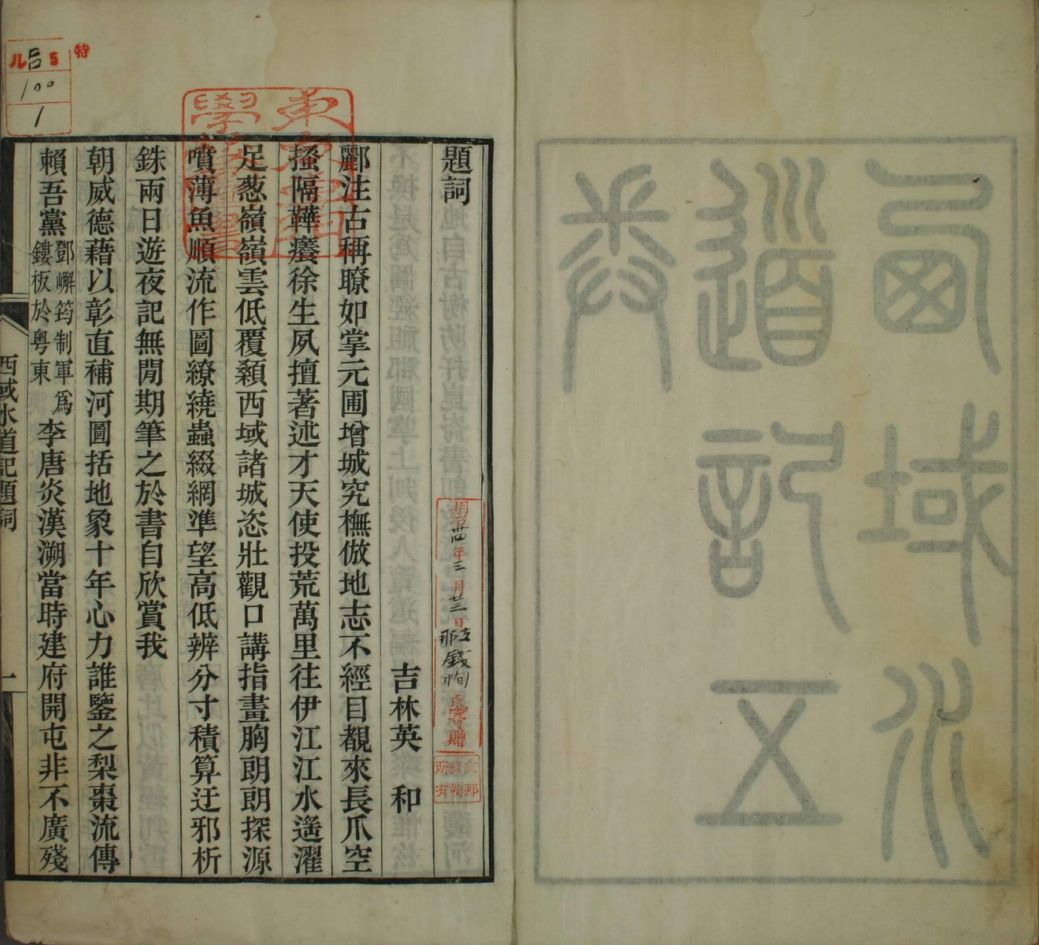 西域水
道記五
卷
題詞
吉林英 和
酈注古稱瞭如掌元圃增城究橅倣地志不經目覩來長爪空
搔隔鞾癢徐生夙擅著述才天使投荒萬里往伊江江水遙濯
足葱嶺嶺雲低覆顙西域諸城恣壯觀口講指畫胸朗朗探源
噴薄魚順流作圖繚繞蟲綴網準望高低辨分寸積算迂邪析
銖兩日遊夜記無閒期筆之於書自欣賞我
朝威德藉以彰直補河圖括地象十年心力誰鑒之梨棗流傳
賴吾黨鄧嶰筠制軍爲鏤板於粵東李唐炎漢溯當時建府開屯非不廣殘
西域水道記題詞
一
特
ル 5
100
1
年三月廿三日
錢恂
贈